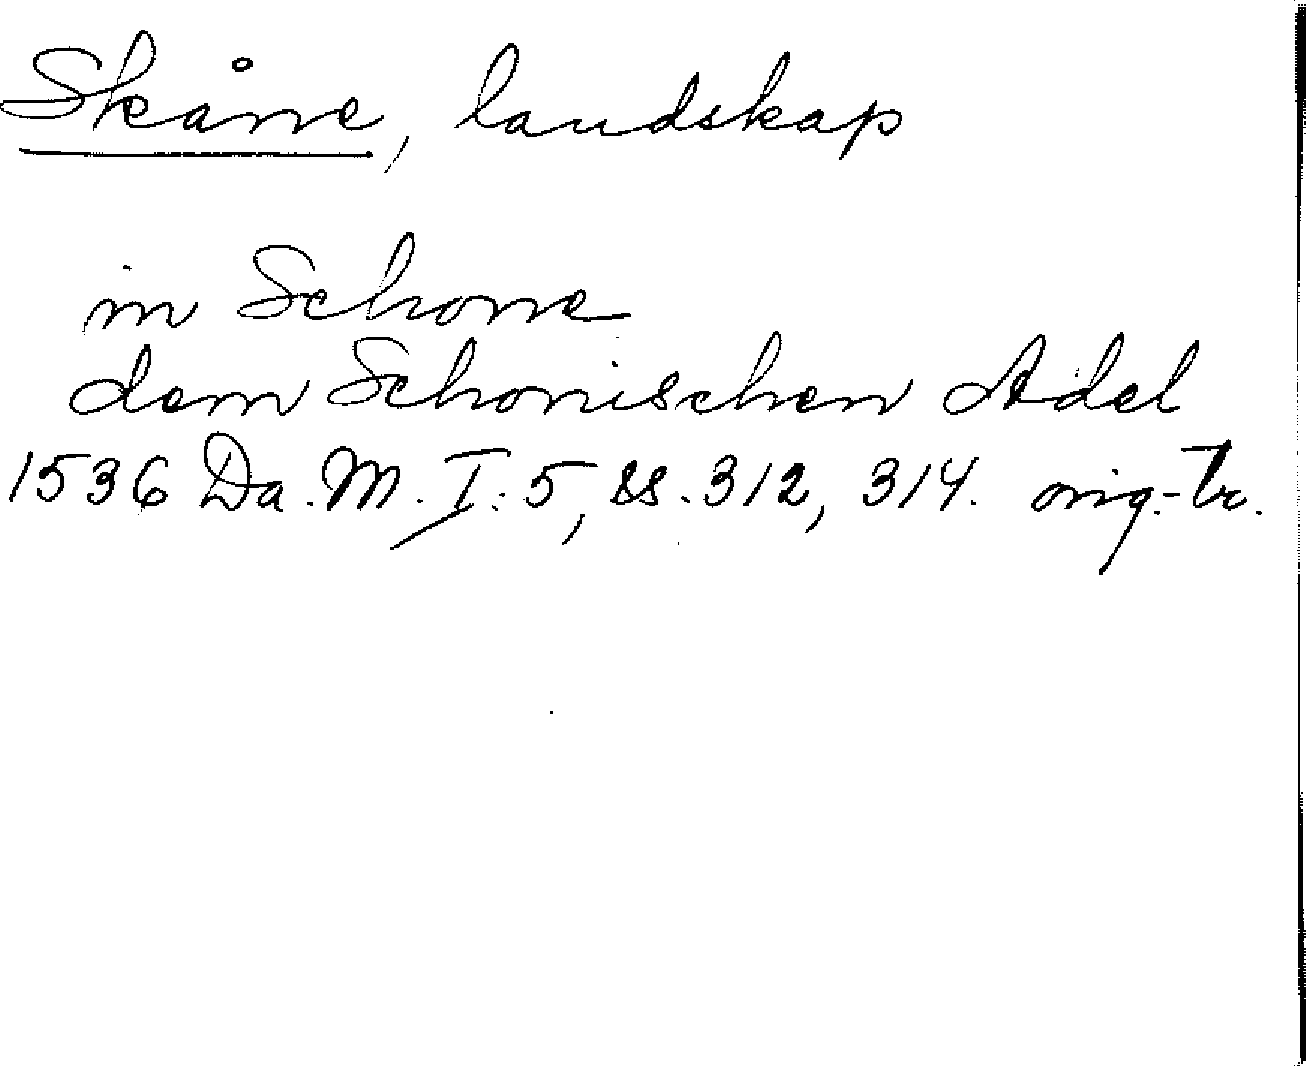 Skåne, landskap
in Schone
dem Schonischen Adel
1536 Da. M. I: 5, ss. 312, 314. orig.-tr.